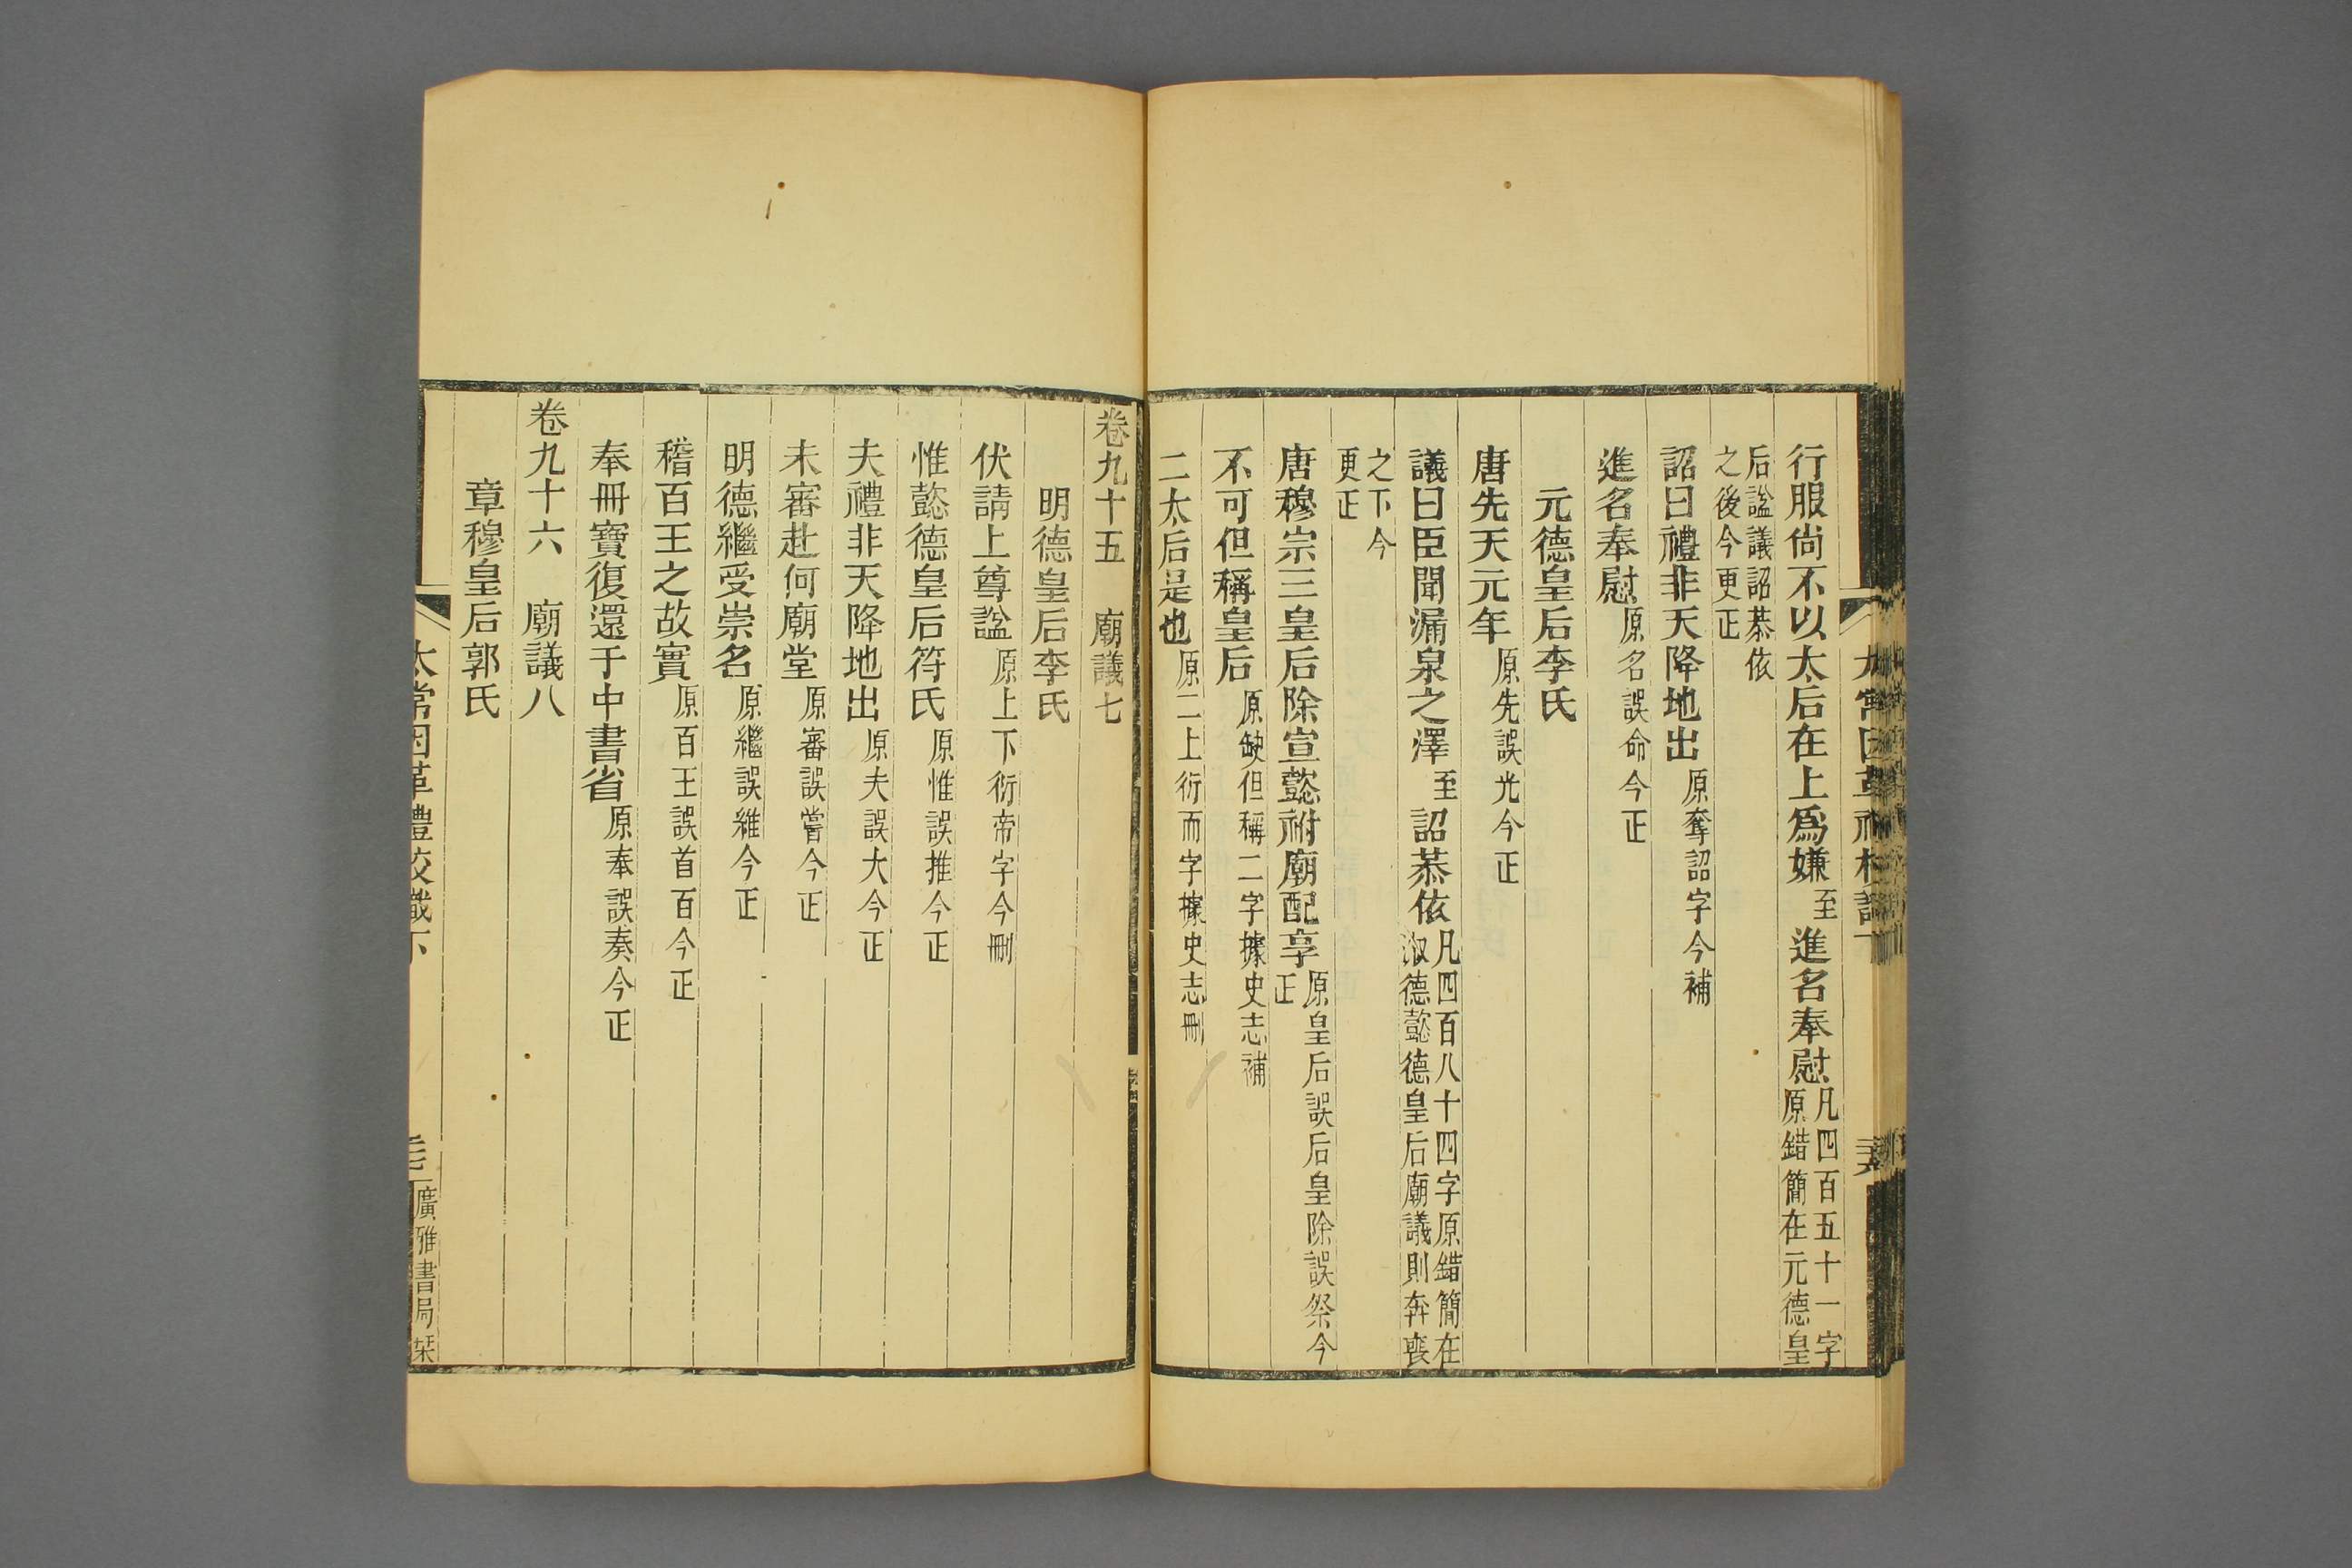 行服尙不以太后在上爲嫌至進名奉慰凡四百五十一字原錯簡在元德皇
后諡議詔恭依之後今更正
詔曰禮非天降地出原奪詔字今補
進名奉慰原名誤命今正
元德皇后李氏
唐先天元年原先誤光今正
議曰臣聞漏泉之澤至詔恭依凡四百八十四字原錯簡在淑德懿德皇后廟議則奔喪
之下今更正
唐穆宗三皇后除宣懿祔廟配享原皇后誤后皇除誤祭今正
不可但稱皇后原缺但稱二字據史志補
二太后是也原二上衍而字據史志刪
卷九十五 廟議七
明德皇后李氏
伏請上尊諡原上下衍帝字今刪
惟懿德皇后符氏原惟誤推今正
夫禮非天降地出原夫誤大今正
未審赴何廟堂原審誤嘗今正
明德繼受崇名原繼誤維今正
稽百王之故實原百王誤首百今正
奉冊寶復還于中書省原奉誤奏今正
卷九十六 廟議八
章穆皇后郭氏
太常因革禮校識下
廣雅書局栞